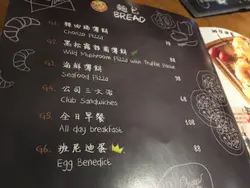 麵包
BREAD
G1. 辣肉腸薄餅
Chorizo Pizza
G2. 黑松露野菌薄餅
Wild Mushroom Pizza with Truffle Paste
G3. 海鮮薄餅
Seafood Pizza
G4. 公司三文治
Club Sandwiches
G5. 全日早餐
All day breakfast
G6. 班尼迪蛋
Egg Benedict